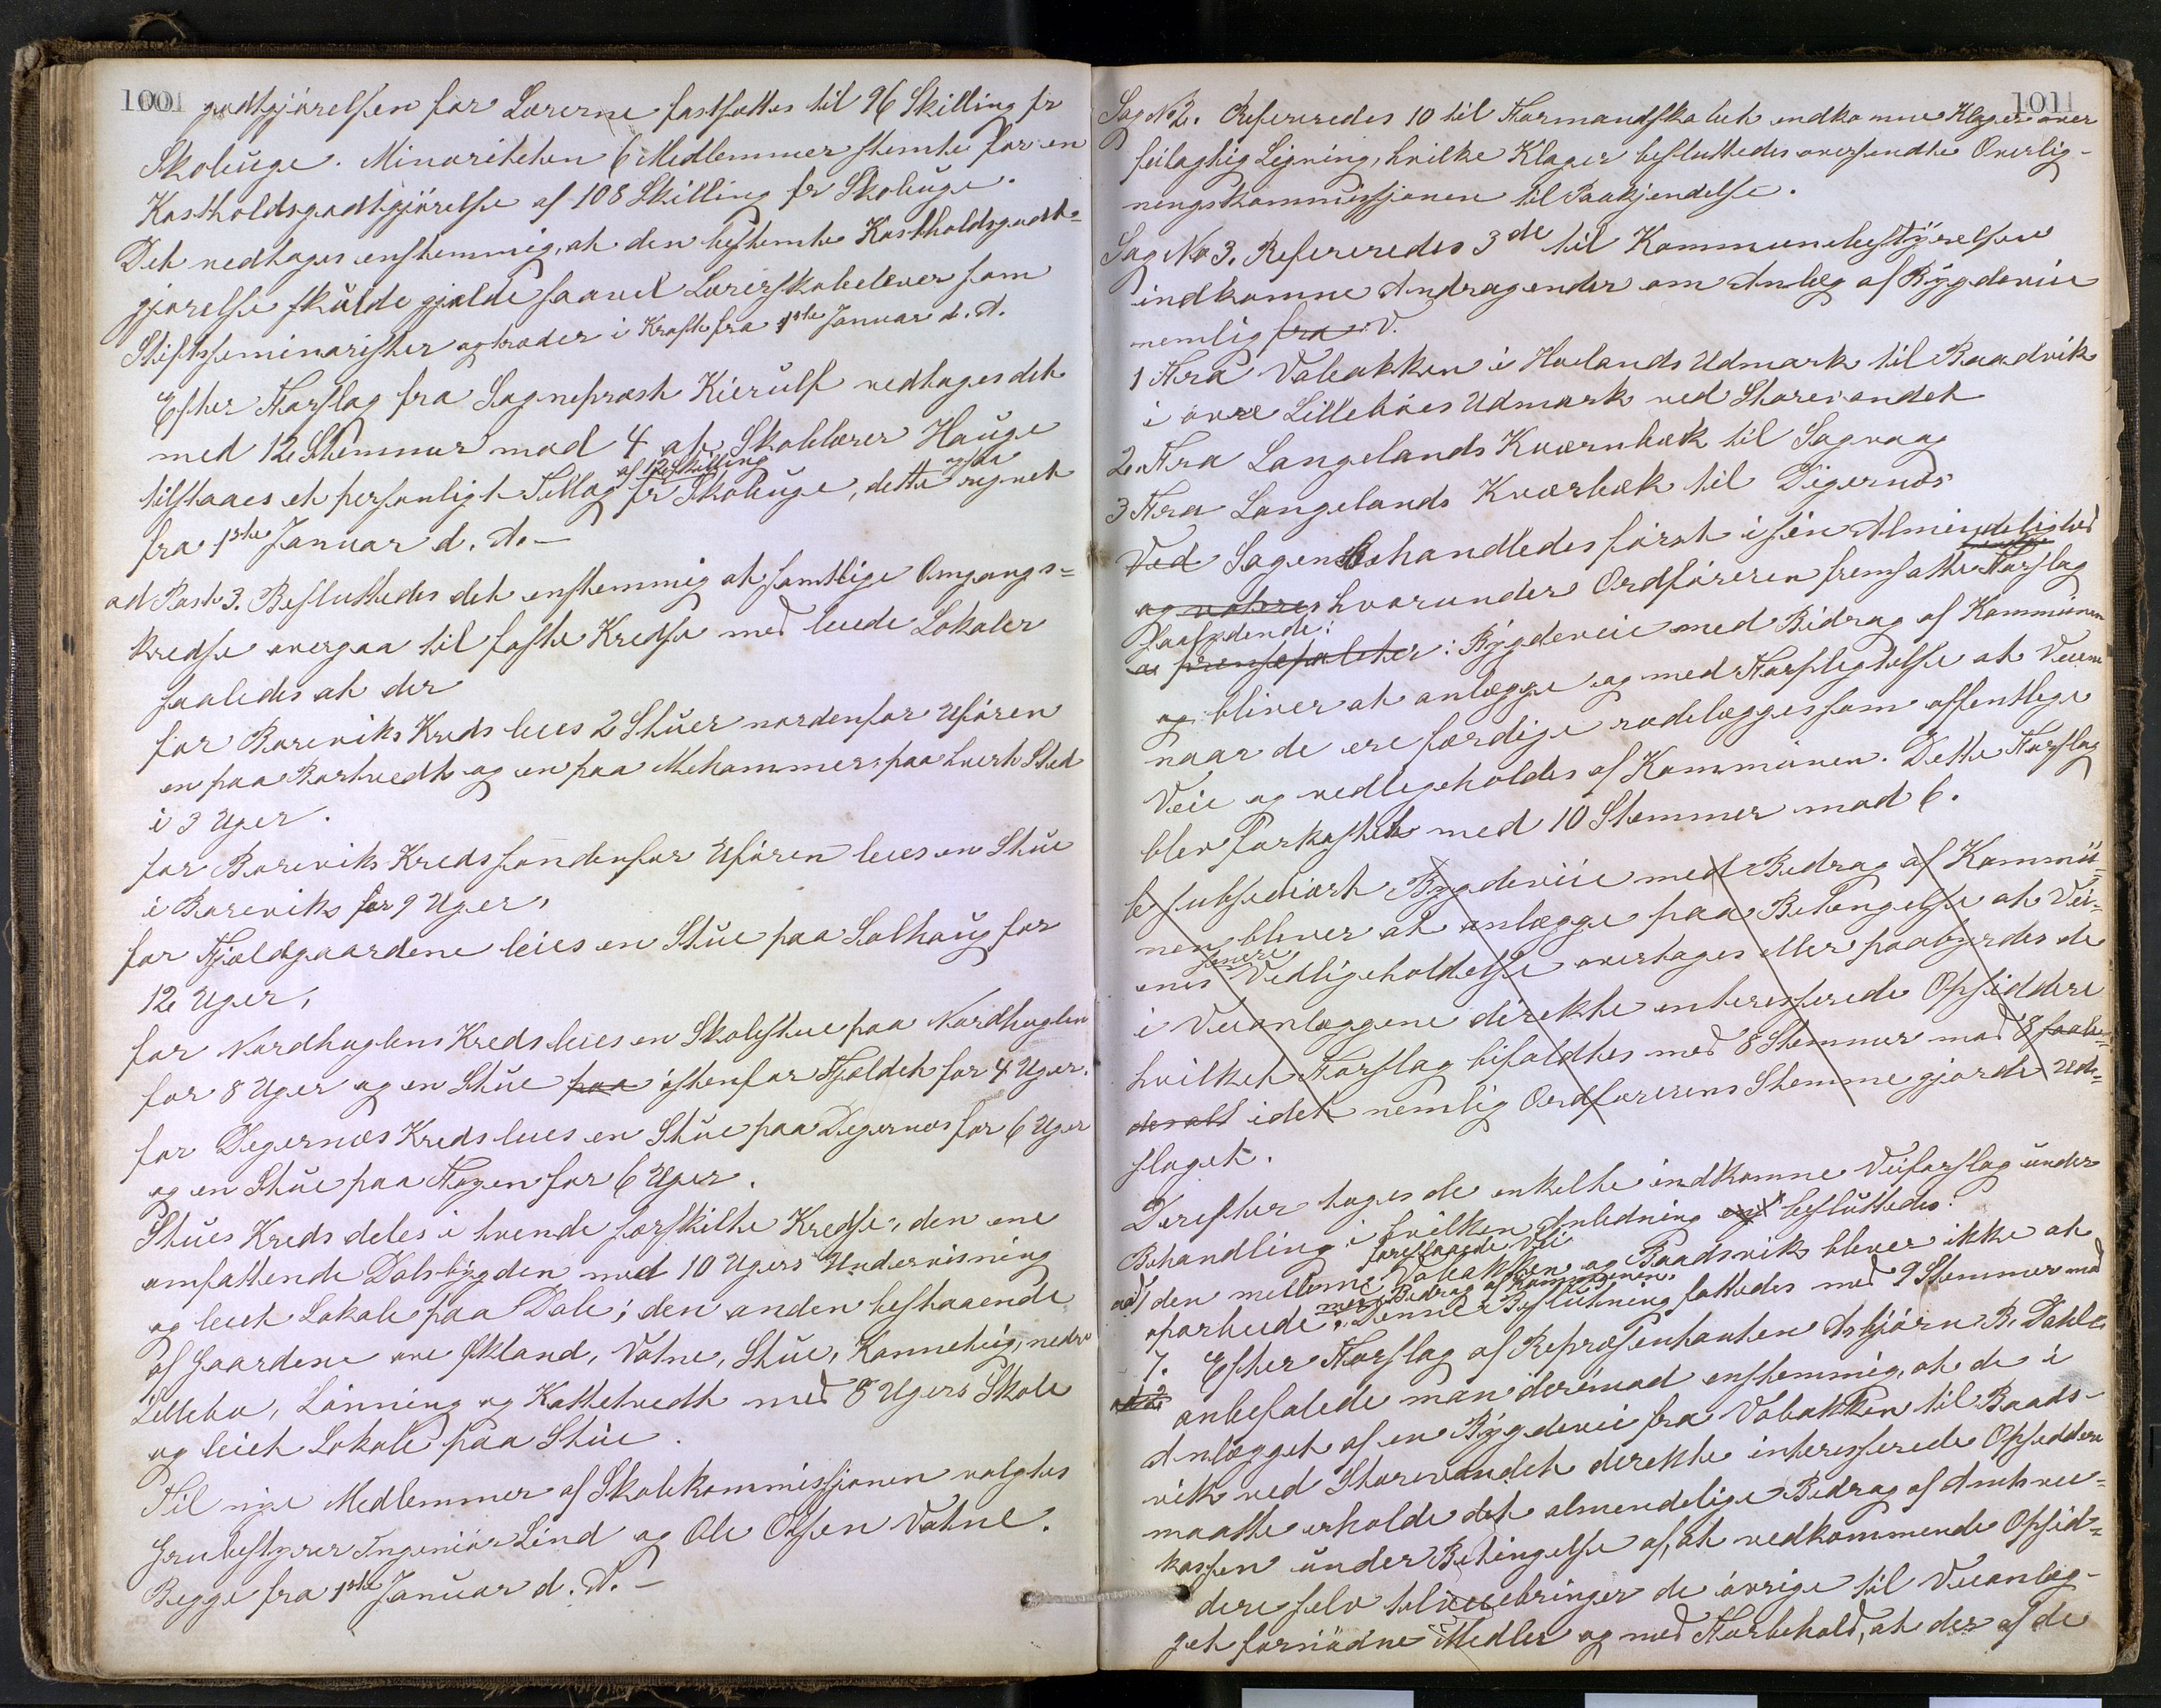 1001
godtgjörelsen for Lærerne fastsattes til 96 Skilling pr
Skoleuge. Minoriteten 6 Medlemmer stemte for en
Kostholdsgodtgjörelse af 108 Skilling pr Skoleuge.
Det vedtoges enstemmig, at den bestemte Kostholdsgodt=
gjörelse skulde gjælde saavel Lærerskoleelever som
Stiftsseminarister og træder i Kraft fra 1ste Januar d. A.
Efter Forslag fra Sogneprest Kierulf vedtoges det
med 12 Stemmer mod 4 at Skolelærer Hauge
tilstaaes et personligt Tillæg af 12 Skilling pr Skoleuge, dette ogsaa regnet
fra 1ste Januar d. A. –
ad Post 3. Besluttedes det enstemmig at samtlige Omgangs=
kredse overgaa til faste Kredse med leiede Lokaler
saaledes at der
for Boreviks Kreds leies 2 Stuer nordenfor Ufören
en paa Bortvedt og en paa Mehammer, paa hvert Sted
i 3 Uger.
for Boreviks Kreds söndenfor Ufören leies en Stue
i Boreviks for 9 Uger,
for Fjeldgaardene leies en Stue paa Solhaug for
12 Uger,
for Nordhuglens Kreds leies en Skolestue paa Nordhuglen
for 8 Uger og en Stue paa östenfor Fjeldet for 4 Uger.
for Digernes Kreds leies en Stue paa Digernes for 6 Uger
og en Stue paa Hagen for 6 Uger.
Stues Kreds deles i tvende forskilte Kredse, den ene
omfattende Dalsbygden med 10 Ugers Undervisning
og leiet Lokale paa Dale; den anden bestaaende
af Gaardene Økland, Vatne, Stue, Kannelög, nedre
Lillebø, Lönning og Kattetvedt med 8 Ugers Skole
og leiet Lokale paa Stue.
Til nye Medlemmer af Skolekommissjonen valgtes
Grubestyrer Ingeniör Lind og Ole Olsen Vatne.
Begge fra 1ste Januar d. A. –
1011
Sag No 2. Refereredes 10 til Formandskabet indkomne Klager over
feilagtig Ligning, hvilke Klager besluttedes oversendte Overlig-
ningskommissjonen til Paakjendelse.
Sag No 3. Refereredes 3de til Kommunebestyrelsen
indkomne Andragender om Anlæg af Bygdeveie
nemlig fra V.
1 Fra Vabakken i Hovlands Udmark til Baadvik
i övre Lilleböes Udmark ved Storevandet
2. Fra Langelands Kværnbæk til Sagvaag
3 Fra Langelands Kværbæk til Digernes
Ved Sagen Behandledes först i sin Almindelighed
og hvorunder Ordföreren fremsatte Forslag
saalydende:
a prinsepaleter: Bygdeveie med Bidrag af Kommunen
og bliver at anlægge og med Forpligtelse at Veiene
naar de ere færdige rodelægges som offentlige
Veie og vedligeholdes af Kommunen. Dette Forslag
blev forkastet med 10 Stemmer mod 6.
b subsediært Bygdeveie med Bidrag af Kommu=
nen bliver at anlægge paa Betingelse at Vei=
enes senere Vedligeholdelse overtages eller paabyrdes de
i Veianlæggene direkte interesserede Opsiddere
hvilket Forslag bifaldtes med 8 Stemmer mod 8 saale=
des alt idet nemlig Ordförerens Stemme gjorde Ud=
slaget.
Derefter toges de enkelte indkomne Veiforslag under
Behandling i hvilken Anledning besluttedes:
ad 1 den mellem foreslaaede Vei Vabakken og Baadsviks bliver ikke at
oparbeide med Bidrag af Kommunen. Denne Beslutning fattedes med 9 Stemmer mod
7. Efter Forslag af Repræsentanten Asbjörn B. Dahle
ad 2 anbefalede man derimod enstemmig, at de i
Anlægget af en Bygdevei fra Vabakken til Baads-
vik ved Storevandet derekte interesserede Opseddere
maatte erholde det almendelige Bedrag af Amtsvei=
kassen under Betingelse af, at vedkommende Opsid=
dere selv tilveiebringer de övrige til Veianlæg-
get fornödne Medler og med Forbehold, at der af de